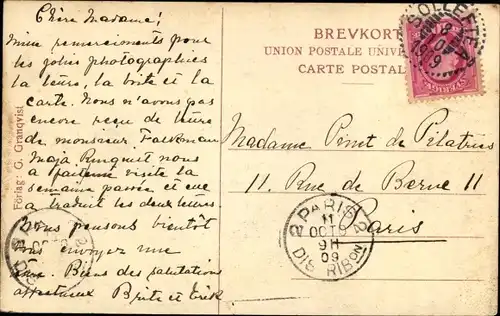 Chère Madame!
Mille remerciements pour
les jolies photographies
la lettre, la boite et la
carte. Nous n'avons pas
encore reçu de lettre
de monsieur
Maja nous
a visite la
semaine passée et elle
a traduit les deux lettres.
Nous pensons bientôt
vous envoyer une
Biens des salutations
affectueux Brite et Erik
Förlag: G. Granqvist
BREVKORT
UNION POSTALE UNIVE
CARTE POSTAL
SOLLEFTEÅ
8
10
1909
Madame de Pilatrius
11. Rue de Berne 11
Paris
PARIS
11
OCT
9H
09
DISTRIBON